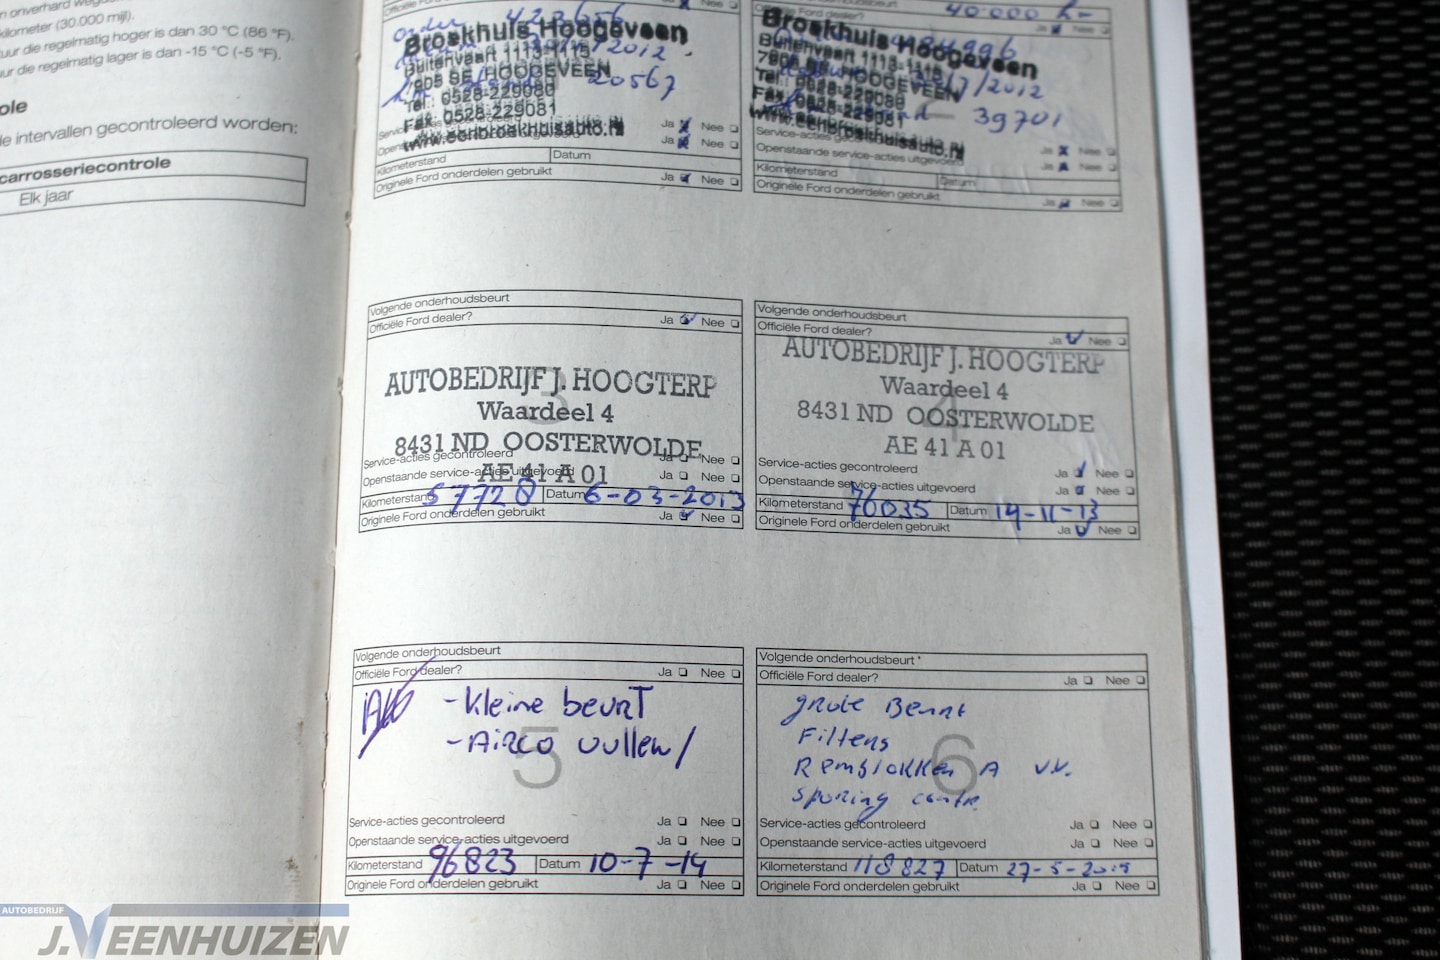 kilometer (30.000 mijl).
uur die regelmatig hoger is dan 30 °C (86 °F).
uur die regelmatig lager is dan -15 °C (-5 °F).
de intervallen gecontroleerd worden:
carrosseriecontrole
Elk jaar
Broekhuis Hoogeveen
Buitenvaart 1113-1115
7905 SE HOOGEVEEN
20567
Tel.: 0528-229080
Fax: 0528-229081
www.eenbroekhuisauto.nl
Ja Nee
Ja
Kilometerstand Datum
Originele Ford onderdelen gebruikt Ja Nee
40.000
Broekhuis Hoogeveen
Buitenvaart 1113-1115
HOOGEVEEN
/7/2012
Tel.: 0528-229080
39701
www.eenbroekhuisauto.nl
Ja Nee
Openstaande service-acties uitgevoerd Ja Nee
Kilometerstand Datum
Originele Ford onderdelen gebruikt Ja Nee
Volgende onderhoudsbeurt
Officiële Ford dealer? Ja Nee
3
AUTOBEDRIJF J. HOOGTERP
Waardeel 4
8431 ND OOSTERWOLDE
AE 41 A 01
Service-acties gecontroleerd Ja Nee
Openstaande service-acties uitgevoerd Ja Nee
Kilometerstand 57720 Datum 6-03-2013
Originele Ford onderdelen gebruikt Ja Nee
Volgende onderhoudsbeurt
Officiële Ford dealer? Ja Nee
4
AUTOBEDRIJF J. HOOGTERP
Waardeel 4
8431 ND OOSTERWOLDE
AE 41 A 01
Service-acties gecontroleerd Ja Nee
Openstaande service-acties uitgevoerd Ja Nee
Kilometerstand 76035 Datum 14-11-13
Originele Ford onderdelen gebruikt Ja Nee
Volgende onderhoudsbeurt
Officiële Ford dealer? Ja Nee
- Kleine beurt
- Airco vullen /
5
Service-acties gecontroleerd Ja Nee
Openstaande service-acties uitgevoerd Ja Nee
Kilometerstand 96823 Datum 10-7-14
Originele Ford onderdelen gebruikt Ja Nee
Volgende onderhoudsbeurt
Officiële Ford dealer? Ja Nee
grote Beurt
Filters
Remblokken A v.v.
sporing contr
6
Service-acties gecontroleerd Ja Nee
Openstaande service-acties uitgevoerd Ja Nee
Kilometerstand 118827 Datum 27-5-2015
Originele Ford onderdelen gebruikt Ja Nee
AUTOBEDRIJF
J. VEENHUIZEN